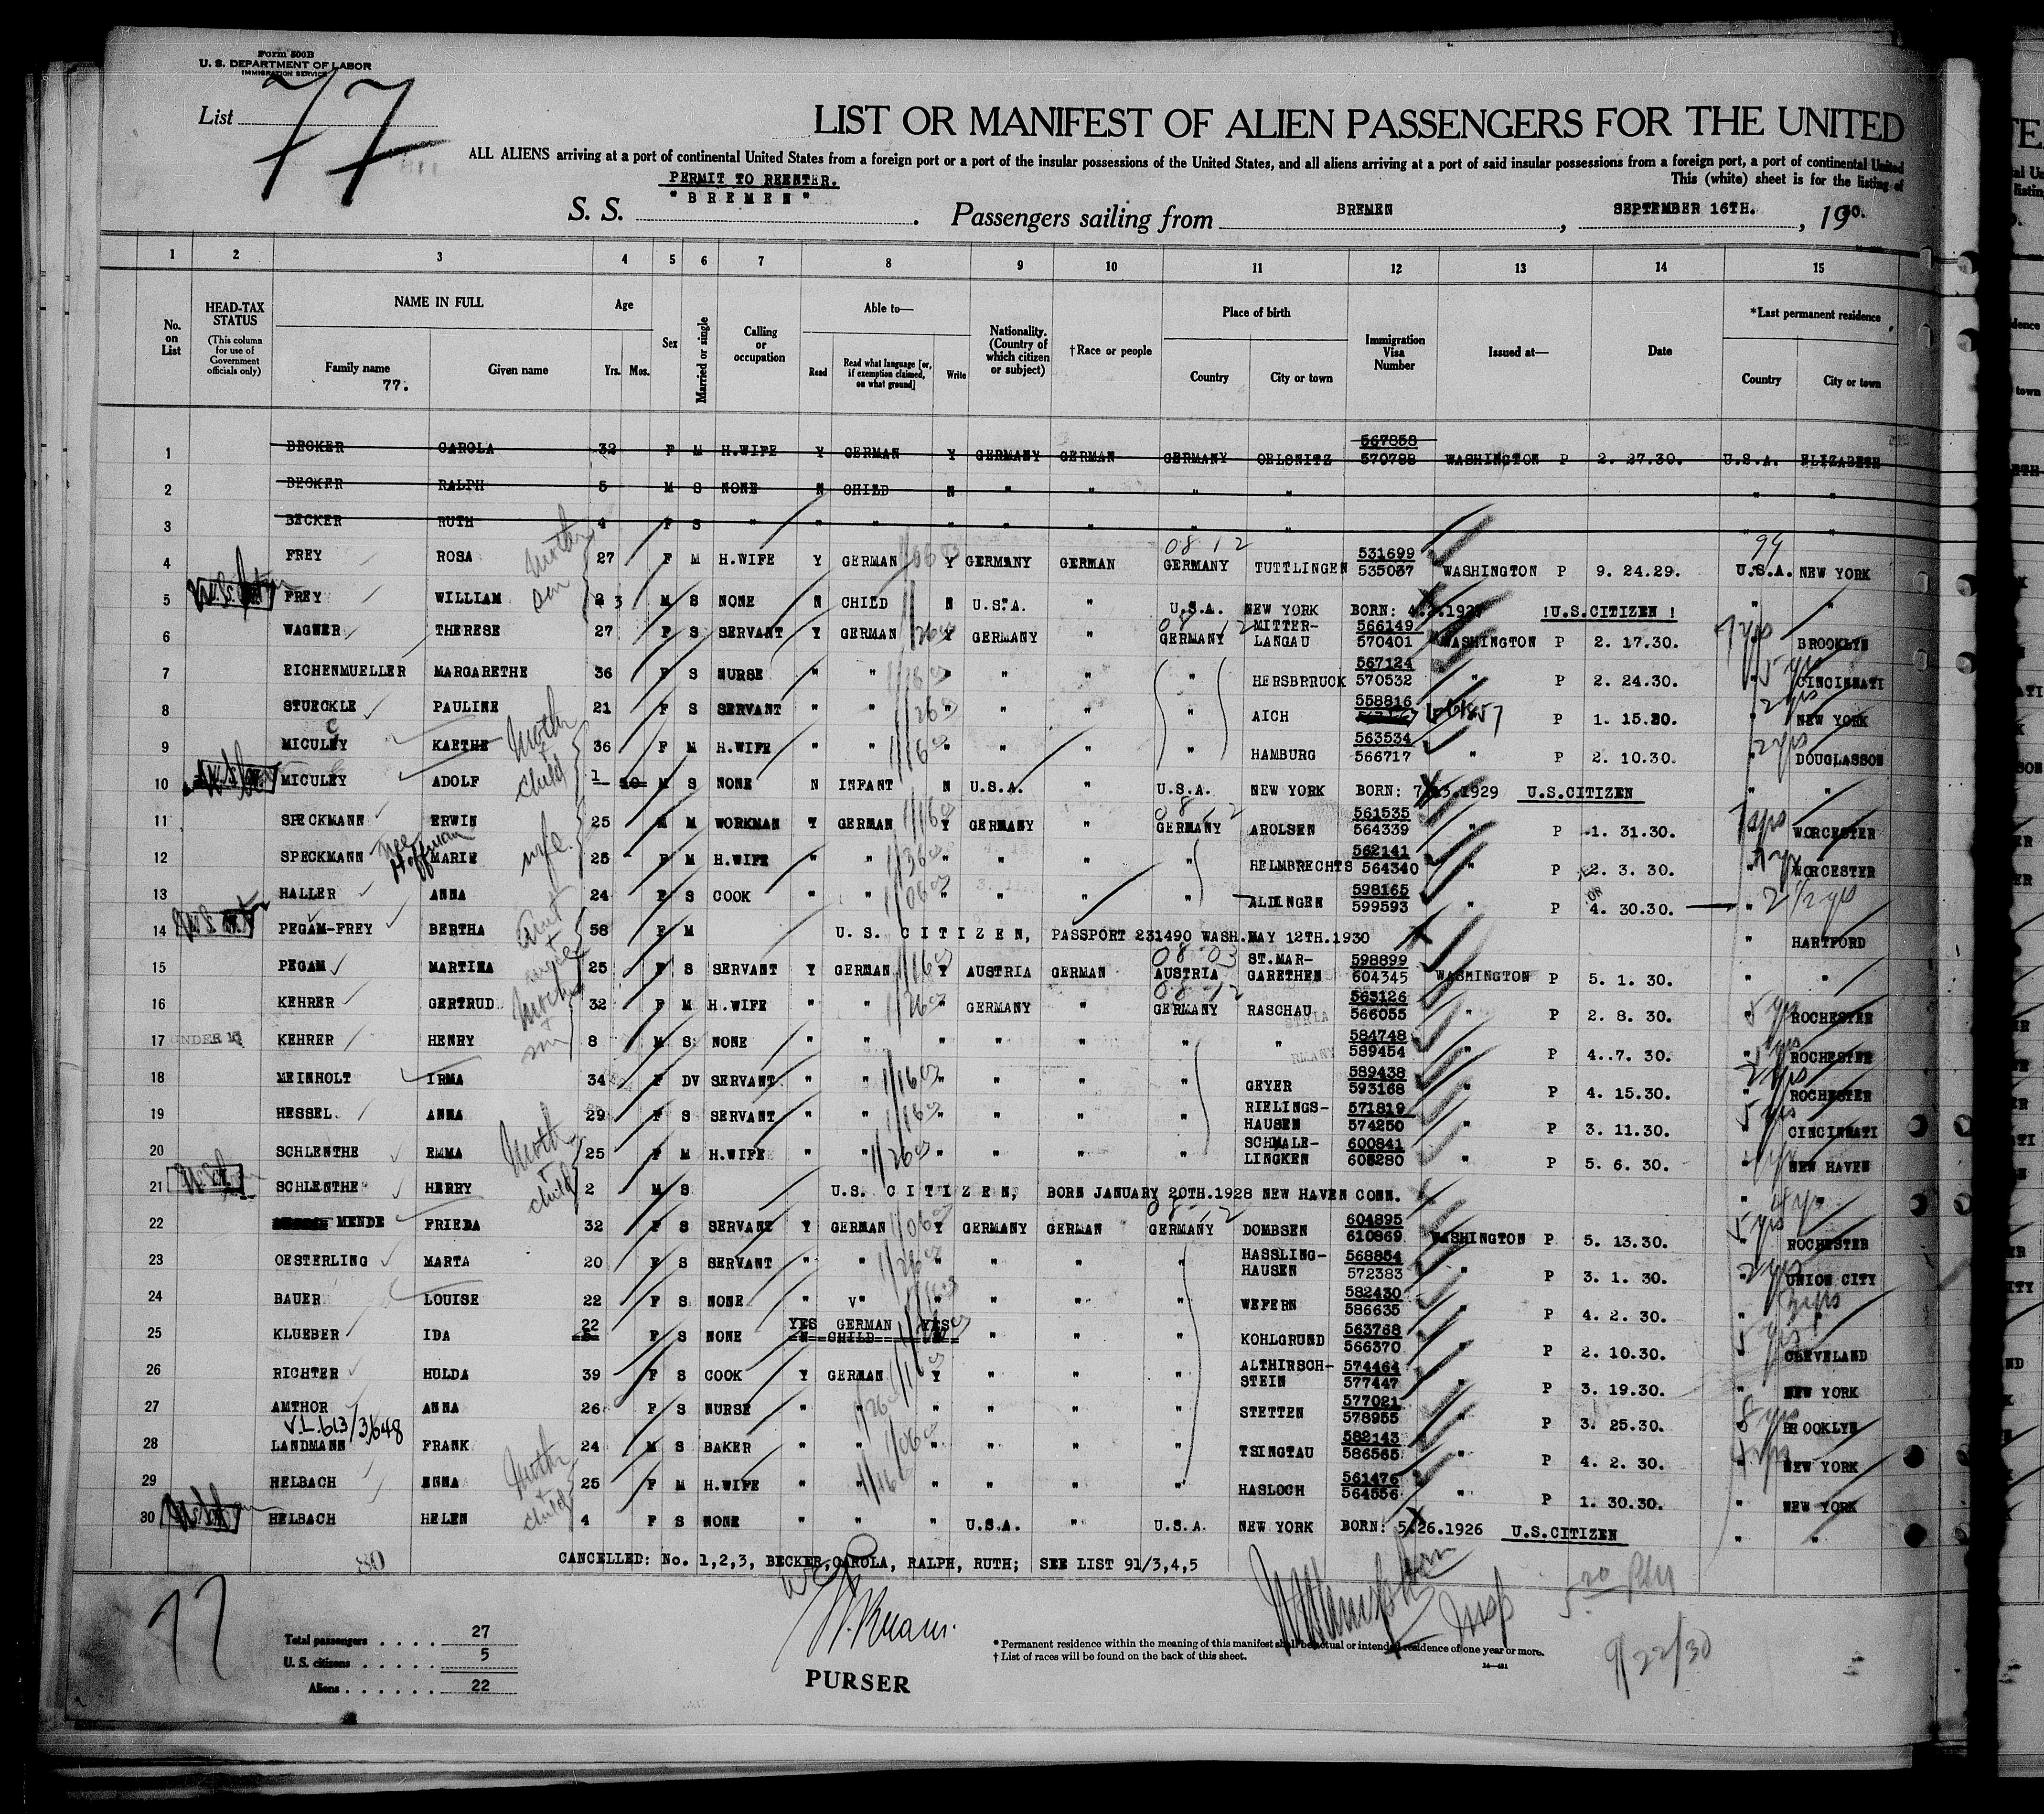 Form 500B
U. S. DEPARTMENT OF LABOR
IMMIGRATION SERVICE
List 77
LIST OR MANIFEST OF ALIEN PASSENGERS FOR THE UNITED
ALL ALIENS arriving at a port of continental United States from a foreign port or a port of the insular possessions of the United States, and all aliens arriving at a port of said insular possessions from a foreign port, a port of continental United
This (white) sheet is for the listing of
PERMIT TO REENTER.
S. S. "BREMEN". Passengers sailing from BREMEN, SEPTEMBER 16TH., 1930.
1 2 3 4 5 6 7 8 9 10 11 12 13 14 15
No. on List
HEAD-TAX STATUS (This column for use of Government officials only)
NAME IN FULL Family name Given name
77.
Age Yrs. Mos.
Sex
Married or single
Calling or occupation
Able to— Read Read what language [or, if exemption claimed, on what ground] Write
Nationality. (Country of which citizen or subject)
†Race or people
Place of birth Country City or town
Immigration Visa Number
Issued at—
Date
*Last permanent residence Country City or town
1 BECKER CAROLA 32 F M H.WIFE Y GERMAN Y GERMANY GERMAN GERMANY OELSNITZ 567858 570788 WASHINGTON P 2. 27.30. U.S.A. ELIZABETH
2 BECKER RALPH 5 M S NONE N CHILD N " " " " " "
3 BECKER RUTH 4 F S " " " " " " " " " "
4 FREY ROSA 27 F M H.WIFE Y GERMAN Y GERMANY GERMAN 08 12 GERMANY TUTTLINGEN 531699 535037 WASHINGTON P 9. 24.29. U.S.A. NEW YORK
Mother son
5 FREY WILLIAM 3 M S NONE N CHILD N U.S.A. " U.S.A. NEW YORK BORN: 1927 !U.S.CITIZEN ! " "
6 WAGNER THERESE 27 F S SERVANT Y GERMAN Y GERMANY " 08 12 GERMANY MITTER-LANGAU 566149 570401 WASHINGTON P 2. 17.30. BROOKLYN
7 RICHENMUELLER MARGARETHE 36 F S NURSE " " " " " " HERSBRRUCK 567124 570532 " P 2. 24.30. 5 yrs CINCINNATI
8 STUECKLE PAULINE 21 F S SERVANT " " " " " " AICH 558816 P 1. 15.30. 2 yrs NEW YORK
9 MICULEY KAETHE 36 F M H.WIFE " " " " " " HAMBURG 563534 566717 " P 2. 10.30. 2 yrs DOUGLASSON
Mother + child
10 MICULEY ADOLF 1 10 M S NONE N INFANT N U.S.A. " U.S.A. NEW YORK BORN: 1929 U.S.CITIZEN " "
11 SPECKMANN ERWIN 25 M M WORKMAN Y GERMAN Y GERMANY " 08 12 GERMANY AROLSEN 561535 564339 " P 1. 31.30. WORCESTER
wife.
12 SPECKMANN nee Hoffman MARIE 25 F M H.WIFE " " " " " " HELMBRECHTS 562141 564340 " P 2. 3. 30. WORCESTER
13 HALLER ANNA 24 F S COOK " " " " " " ALDINGEN 598165 599593 P 4. 30.30. " 2 1/2 yrs
14 PEGAM-FREY BERTHA 58 F M U.S. CITIZEN, PASSPORT 231490 WASH.MAY 12TH.1930 " HARTFORD
Aunt + niece
15 PEGAM MARTINA 25 F S SERVANT Y GERMAN Y AUSTRIA GERMAN 08 03 AUSTRIA ST.MAR-GARETHEN 598899 604345 WASHINGTON P 5. 1. 30. " "
16 KEHRER GERTRUD 32 F M H.WIFE " " " GERMANY " 08 12 GERMANY RASCHAU 563126 566055 " P 2. 8. 30. 5 yrs ROCHESTER
Mother + son
17 UNDER 16 KEHRER HENRY 8 M S NONE " " " " " " " 584748 589454 " P 4. 7. 30. ROCHESTER
18 MEINHOLT IRMA 34 F DV SERVANT " " " " " " GEYER 589438 593168 " P 4. 15.30. ROCHESTER
19 HESSEL ANNA 29 F S SERVANT " " " " " " RIELINGS-HAUSEN 571819 574250 " P 3. 11.30. 5 yrs CINCINNATI
20 SCHLENTHE EMMA 25 F M H.WIFE " " " " " " SCHMALE-LINGKEN 600841 606280 " P 5. 6. 30. NEW HAVEN
Mother + child
21 SCHLENTHE HERRY 2 M S U.S. CITIZEN, BORN JANUARY 20TH.1928 NEW HAVEN CONN. "
22 MENDE FRIEDA 32 F S SERVANT Y GERMAN Y GERMANY GERMAN 08 12 GERMANY DOMBSEN 604895 610869 WASHINGTON P 5. 13.30. 5 yrs ROCHESTER
23 OESTERLING MARTA 20 F S SERVANT " " " " " " HASSLING-HAUSEN 568854 572383 " P 3. 1. 30. 2 yrs UNION CITY
24 BAUER LOUISE 22 F S NONE " V" " " " " WEFERN 582430 586635 " P 4. 2. 30. " "
25 KLUEBER IDA 22 F S NONE YES GERMAN YES N CHILD N " " " KOHLGRUND 563768 566370 " P 2. 10.30. 5 yrs CLEVELAND
26 RICHTER HULDA 39 F S COOK Y GERMAN Y " " " ALTHIRSCH-STEIN 574464 577447 " P 3. 19.30. " NEW YORK
27 AMTHOR ANNA 26 F S NURSE " " " " " " STETTEN 577021 578955 " P 3. 25.30. 8 yrs BROOKLYN
V.L. 613/3/648
28 LANDMANN FRANK 24 M S BAKER " " " " " " TSINGTAU 582143 586565 " P 4. 2. 30. 4 yrs NEW YORK
29 HELBACH ENNA 25 F M H.WIFE " " " " " " HASLOCH 561476 564556 " P 1. 30.30. " NEW YORK
Mother + child
30 HELBACH HELEN 4 F S NONE " " " U.S.A. " U.S.A. NEW YORK BORN: 5.26.1926 U.S.CITIZEN " "
80
CANCELLED: No. 1,2,3, BECKER,CAROLA, RALPH, RUTH; SEE LIST 91/3,4,5
77
Total passengers . . . . 27
U. S. citizens . . . . . 5
Aliens . . . . . . 22
PURSER
Insp
9/22/30
* Permanent residence within the meaning of this manifest shall be actual or intended residence of one year or more.
† List of races will be found on the back of this sheet.